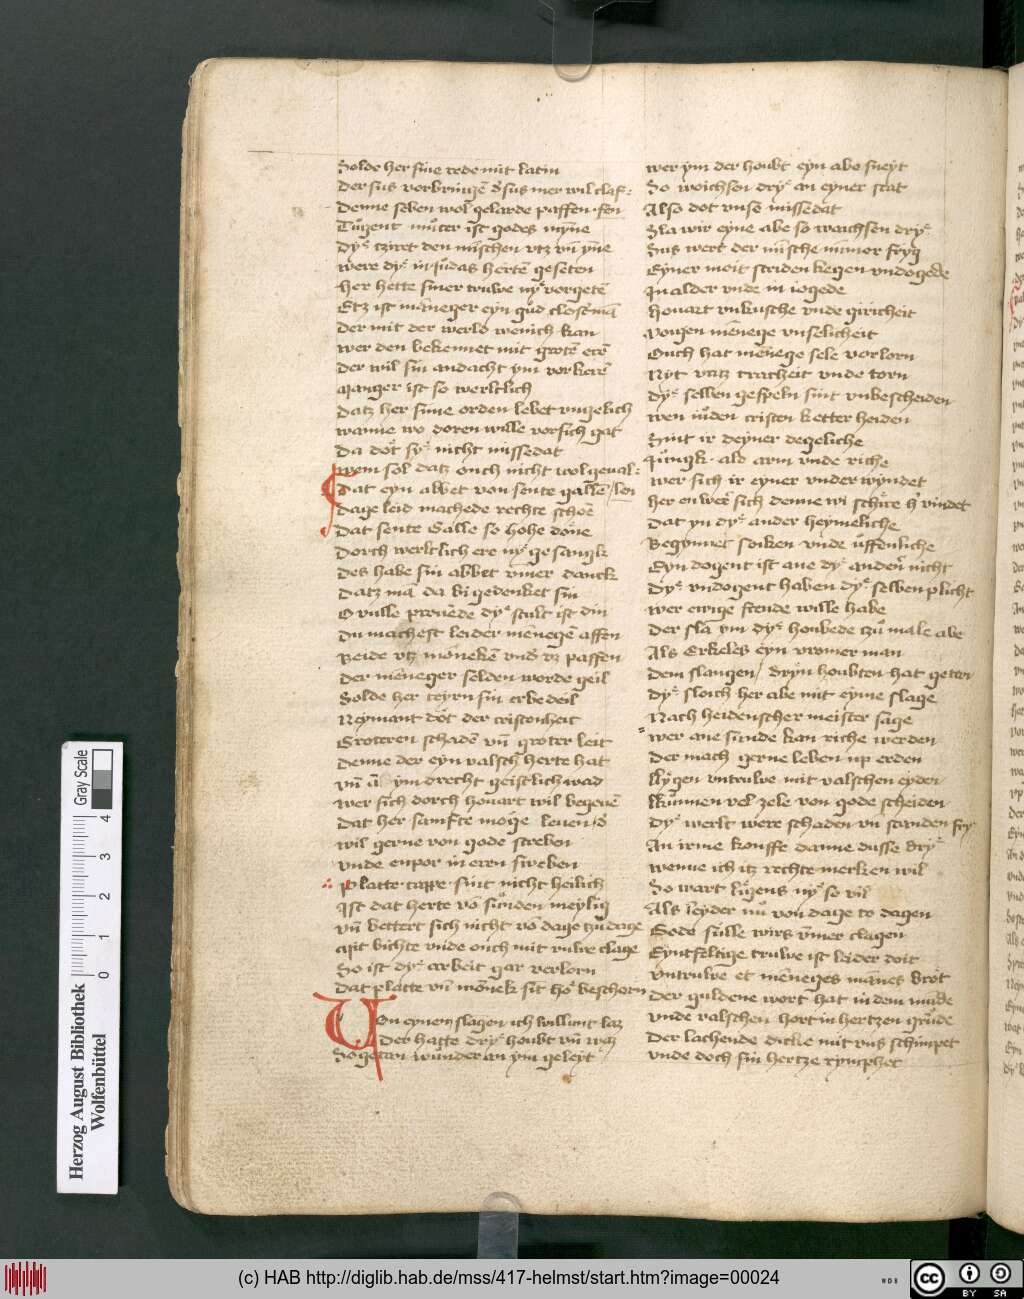 Solde her sine rede mit latin
Der sus vorbringē d' sus mer wil claf:
Denne seben wol gelarde paffen · fen
Tůgent můter ist godes mȳne
Dyͤ cziret den mīschen vtz vn̄ yn̄e
were dyͤ in iůdas hertē geseten
her hette siner truwe nyͤ vorgetē
Etz ist mēneger eyn gůd closterman
Der mit der werld wenich kan
wer den bekennet mit grotē erē
Der wil sin andacht ym vorkerē
Manger ist so werltlich
Datz her sine orden lebet vngelich
wanne wo doren wille vorsich gat
Da dot syͤ nicht missedat
wem sol datz ouch nicht wolgeual:
Dat eyn abbet von sente gallē / len
dage leid machede rechte schoē
Dat sente Galle so hohe dōne
Dorch werltlich ere nyͤ gesangk
Des habe sin abbet vmer danck
Datz mā da bi gedenket sin
O vulle prouēde dyͤ stult ist din
Du machest leider mēnegē affen
Beide vtz mōnekē vnd vz paffen
Der mēneger selden worde geil
Solde her teyrn sin erbedeil
Neymant dot der cristenheit
Groteren schadē vn̄ groter leit
Denne der eyn valsch herte hat
vn̄ ym drecht geistlich wad
wer sich dorch houart wil begeuē
Dat her samfte moge leuen / d'
wil gerne von gode streben
vnde enpor in eren sweben
Platte · cappe · sint nicht heilich
Ist dat herte vō sůnden meylig
vn̄ bettert sich nicht vō dage tzu dage
Mit bichte vnde ouch mit ruwe clage
So ist dyͤ arbeit gar verlorn
Dat platte vn̄ mōnek sit ho beschorn
Von eynem slagen ich willunt laz
Der hatte dryͤ houbt vn̄ waz
So getan wunder an ym geleyt
wer ym der houbt eyn abe sneyt
So woichsen dryͤ an eyner stat
Also dot vnse missedat
Sla wir eyne abe so waichsen dryͤ
Sus wert der mīsche nimer fryg
Eyner moit striden kegen vndogede
In alder vnde in iogede
Houart vnkusche vnde giricheit
vougen mēnege vnselicheit
Ouch hat mēnege sele vorlorn
Nyt vratz tracheit vnde torn
Dyͤ selben gespeln sint vnbescheiden
wen iůden cristen ketter heiden
Sint ir deyner degeliche
Iůngk · ald arm vnde riche
wer sich ir eyner vnder wyndet
her en were sich denne wi schire h' vindet
Dat yn dyͤ ander heymeliche
Begynnet soiken vnde ůffenliche
Eyn dogent ist ane dyͤ andern nicht
Dyͤ vndogent haben dyͤ selben plicht
wer ewige frende wille habe
Der sla ym dyͤ houbede tzů male abe
Als Erkeles eyn vromer man
Dem slangen / dryn houbten hat getan
Dyͤ sloich her abe mit eyme slage
Nach heidenscher meister sage
wer ane sunde kan riche werden
Der mach gerne leben up erden
Lygen vntruwe mit valschen eyden
kunnen vel zele von gode scheiden
Dyͤ werlt were schaden vn̄ scanden fry
An irme kouffe danne dusse dryͤ
wenne ich itz rechte mecken wil
So wart lugens nyͤ so vil
Als leyder nů von dage to dagen
Gode sulle wirs ymer clagen
Eynfeltige truwe ist leider doit
vntruwe et mēneges mānes brot
Der guldene wort hat in dem mūde
vnde valschen hort in hertzen grůde
Der lachende dicke mit vns schimpet
vnde doch sin hertze rymphet
Herzog August Bibliothek
Wolfenbüttel
0 1 2 3 4
Gray Scale
(c) HAB http://diglib.hab.de/mss/417-helmst/start.htm?image=00024
WDB
cc BY SA